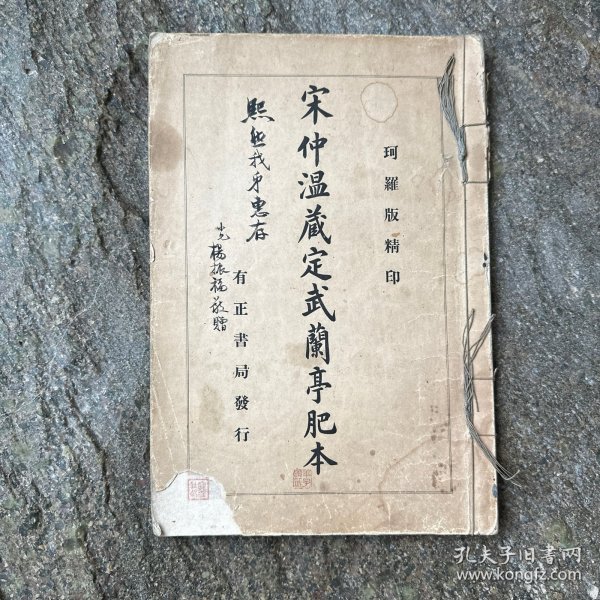 珂羅版精印
宋仲温蔵定武蘭亭肥本
熙
我弟惠存
楊振福敬贈
有正書局發行
孔夫子旧书网
www.kongfz.com